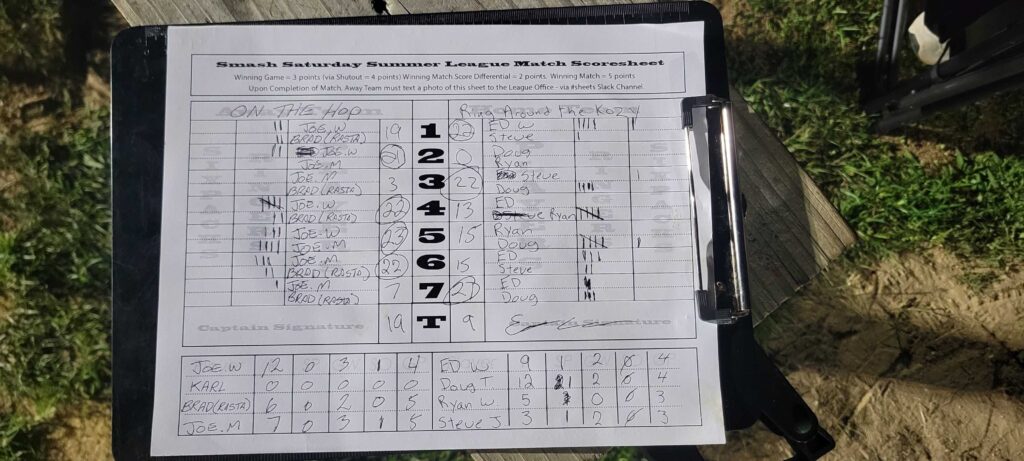 Smash Saturday Summer League Match Scoresheet
Winning Game = 3 points (via Shutout = 4 points) Winning Match Score Differential = 2 points. Winning Match = 5 points
Upon Completion of Match, Away Team must text a photo of this sheet to the League Office - via #sheets Slack Channel
ON THE HOP Ring Around The Kozy
JOE.W 19 1 22 ED W
BRAD(RASTA) Steve
JOE.W 21 2 0 Doug
JOE.M Ryan
JOE.M 3 3 22 Steve
BRAD(RASTA) Doug
JOE.W 22 4 13 ED
BRAD(RASTA) Ryan
JOE.W 23 5 15 Ryan
JOE.M Doug
JOE.M 22 6 15 ED
BRAD(RASTA) Steve
JOE.M 7 7 ED
BRAD(RASTA) Doug
Captain Signature 19 T 9 Captain Signature
JOE.W 12 0 3 1 4 ED W. 9 1 2 0 4
KARL 0 0 0 0 0 Doug T. 12 1 2 0 4
BRAD(RASTA) 6 0 2 0 5 Ryan W. 5 0 0 3
JOE.M 7 0 3 1 5 Steve J 3 1 2 0 3